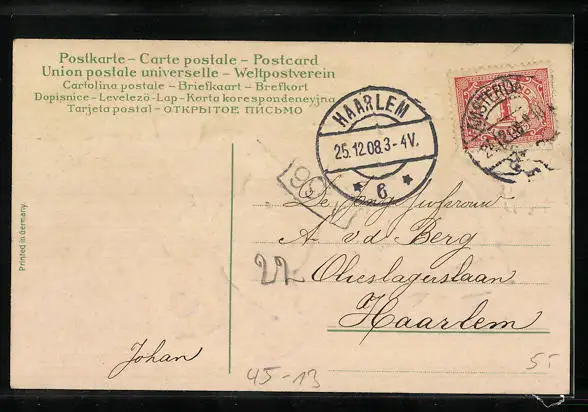 Postkarte – Carte postale – Postcard
Union postale universelle – Weltpostverein
Cartolina postale – Briefkaart – Brefkort
Dopisnice – Levelezö-Lap – Karta korespondencyjna
Tarjeta postal – ОТКРЫТОЕ ПИСЬМО
HAARLEM
25.12.08.3-4V.
6
AMSTERDAM
25.12.08
1
De Jonge Jufvrouw
A. v. d. Berg
22 Olieslagerslaan
Haarlem
Johan
45-13
Printed in Germany.